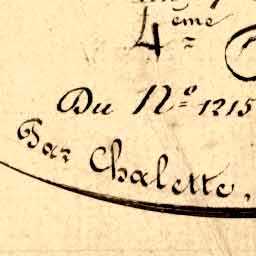 4ème
Du N.º 1215
Par Chalette,